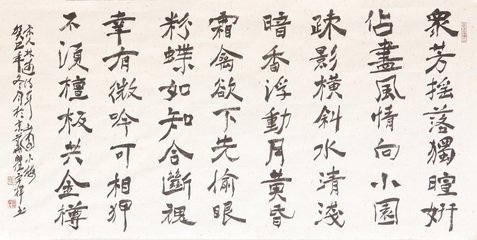 衆芳摇落獨暄妍
佔盡風情向小園
疎影橫斜水清淺
暗香浮動月黄昏
霜禽欲下先偷眼
粉蝶如知合斷魂
幸有微吟可相狎
不須檀板共金樽
宋人林逋詩山園小梅
癸巳年冬月於京華書